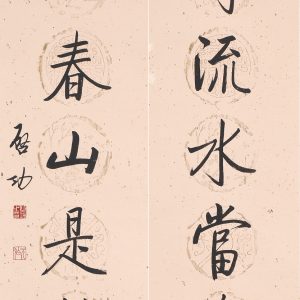 流水當
春山是
启功